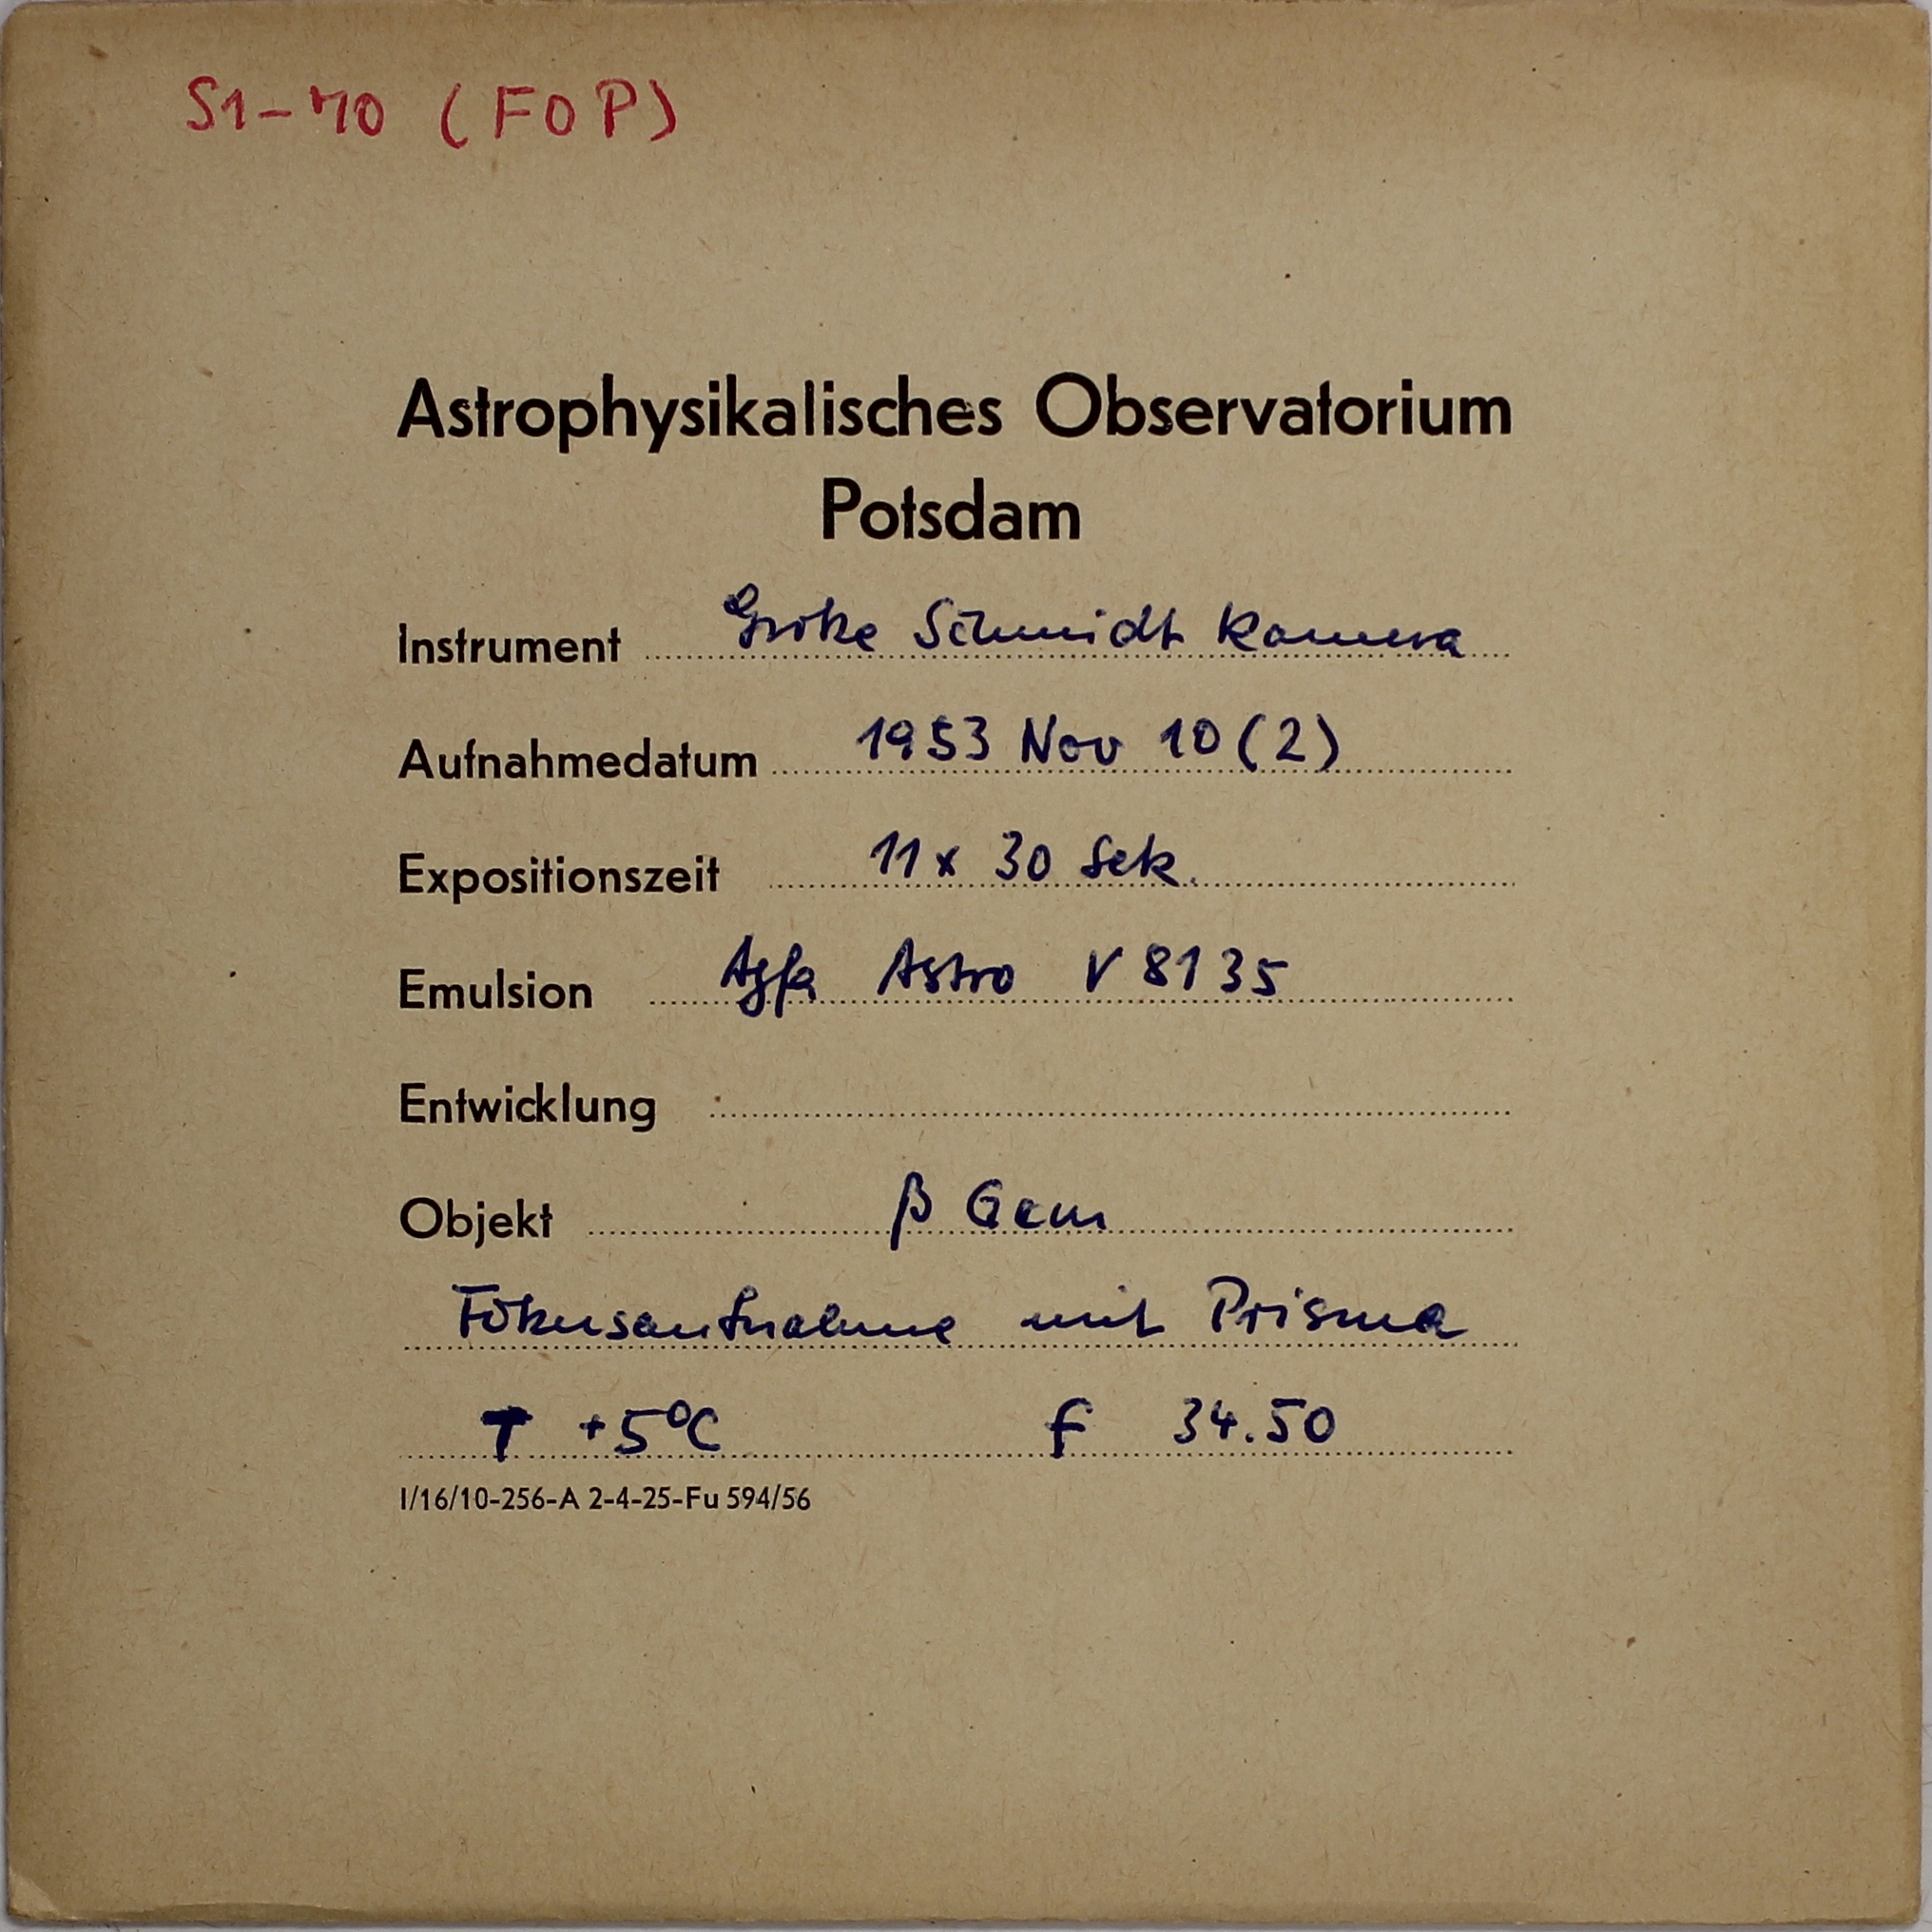 S1-70 (FOP)
Astrophysikalisches Observatorium
Potsdam
Instrument Große Schmidt Kamera
Aufnahmedatum 1953 Nov 10 (2)
Expositionszeit 11x 30 Sek.
Emulsion Agfa Astro V 8135
Entwicklung
Objekt β Gem
Fokusaufnahme mit Prisma
T +5°C f 34.50
I/16/10-256-A 2-4-25-Fu 594/56